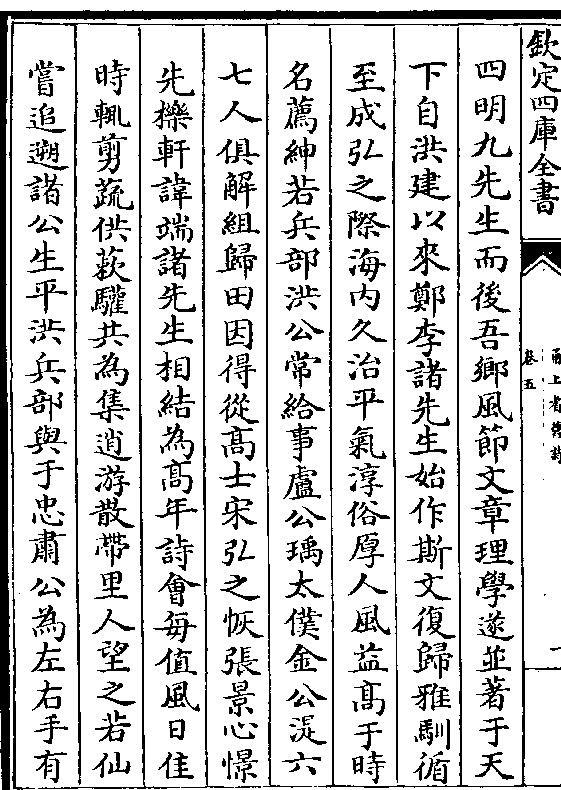 欽定四庫全書
甬上耆舊詩
卷五
一
四明九先生而後吾鄉風節文章理學遂並著于天
下自洪建以來鄭李諸先生始作斯文復歸雅馴循
至成弘之際海内久治平氣淳俗厚人風益髙于時
名薦紳若兵部洪公常給事盧公瑀太僕金公湜六
七人俱解組歸田因得從髙士宋弘之恢張景心憬
先櫟軒諱端諸先生相結為髙年詩會每值風日佳
時輒剪蔬供蔌驩共為集逍游散帶里人望之若仙
嘗追遡諸公生平洪兵部與于忠肅公為左右手有